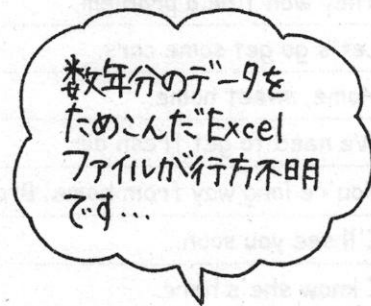 数年分のデータを
ためこんだExcel
ファイルが行方不明
です…